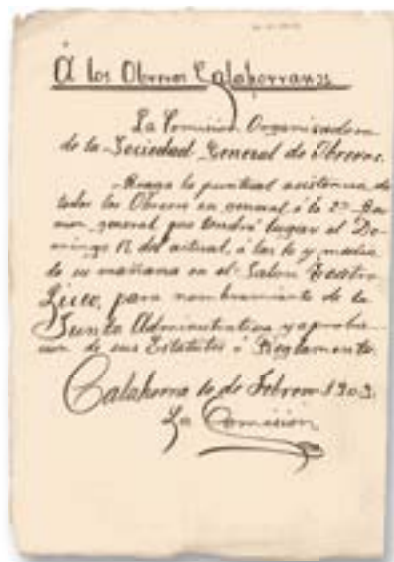 Á los Obreros Calahorranos
La Comisión Organizadora
de la Sociedad General de Obreros.
Ruega la puntual asistencia de
todos los Obreros en general á la 2ª Reu-
nion general que tendrá lugar el Do-
mingo del actual, á las 10 y media
de su mañana en el Salon Teatro
Liceo, para nombramiento de la
Junta Administrativa y aproba-
cion de sus Estatutos ó Reglamento.
Calahorra 10 de Febrero 1903.
La Comisión